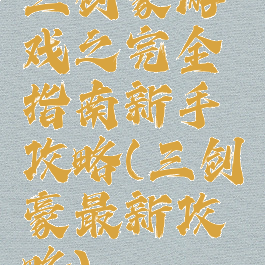 三创豪游
戏之完全
指南新手
攻略(三创
豪最新攻
略)